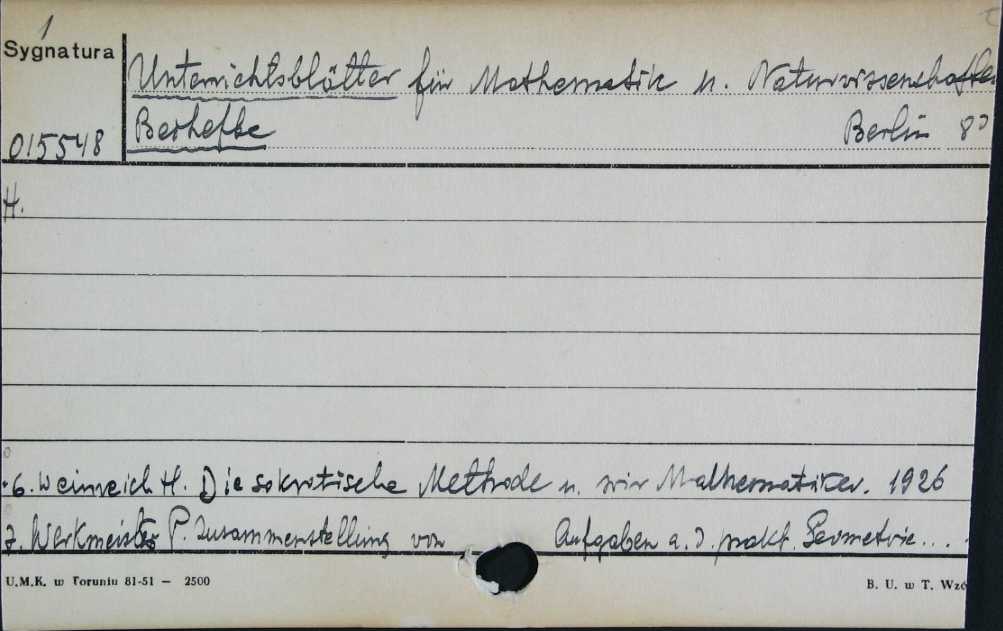 1
Sygnatura
Unterrichtsblätter für Mathematik u. Naturwissenschaften
015548
Beihefte
Berlin 8°
H.
6. Weinreich H. Die sokratische Methode u. wir Mathematiker. 1926
7. Werkmeister P. Zusammenstellung von Aufgaben a. d. prakt. Geometrie...
U.M.K. w Toruniu 81-51 — 2500
B. U. w T. Wzó